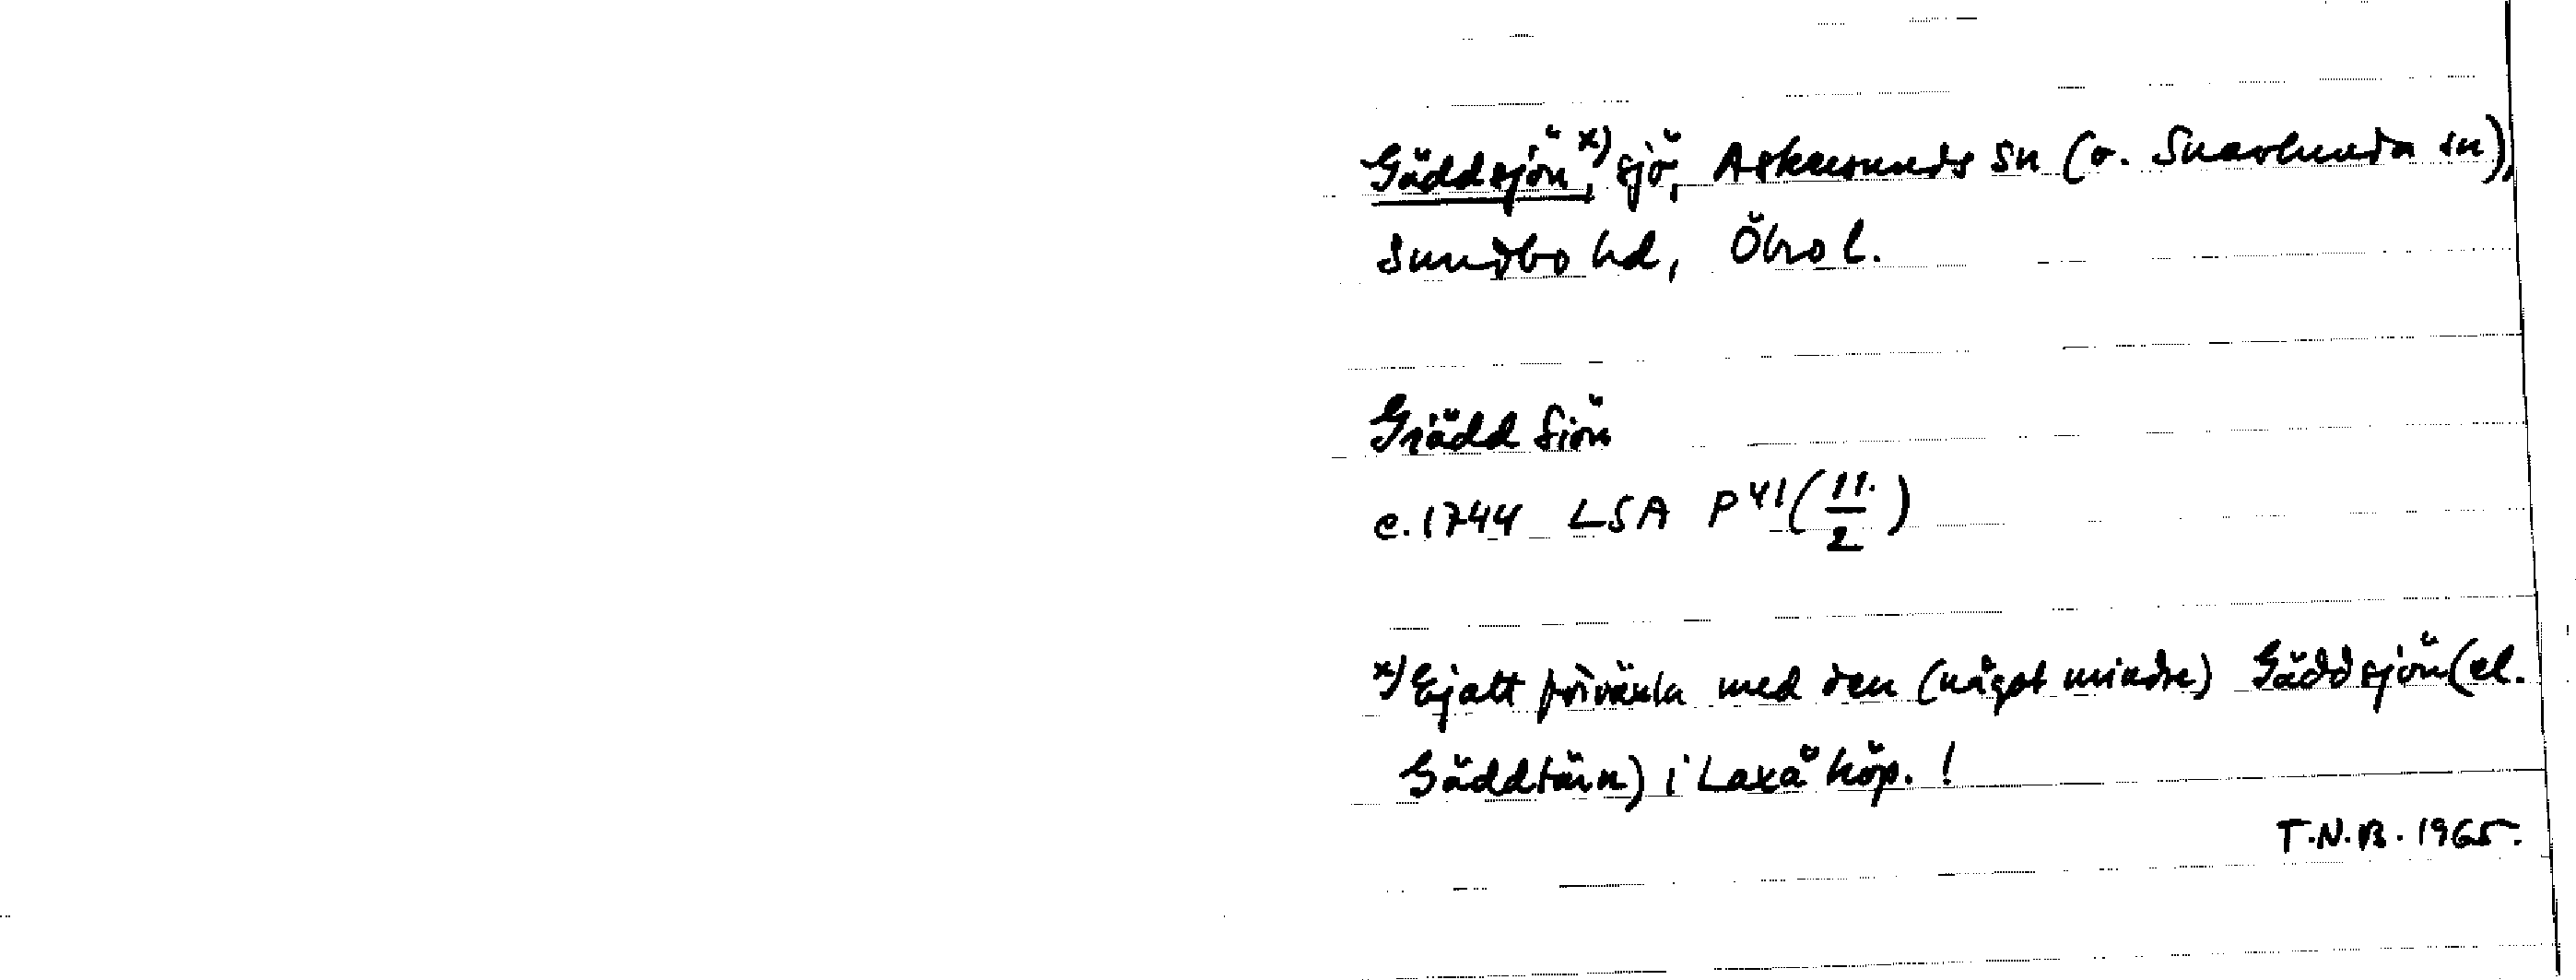 Gäddsjön,ˣ⁾ sjö, Askersunds sn (o. Snavlunda sn),
Sundbo hd, Öbro l.
Giädd Siön
c. 1744 LSA P 41 (11/2)
x) Ej att förväxla med den (något mindre) Gäddsjön (el.
Gäddtärn) i Laxå köp. !
T.N.B. 1965.